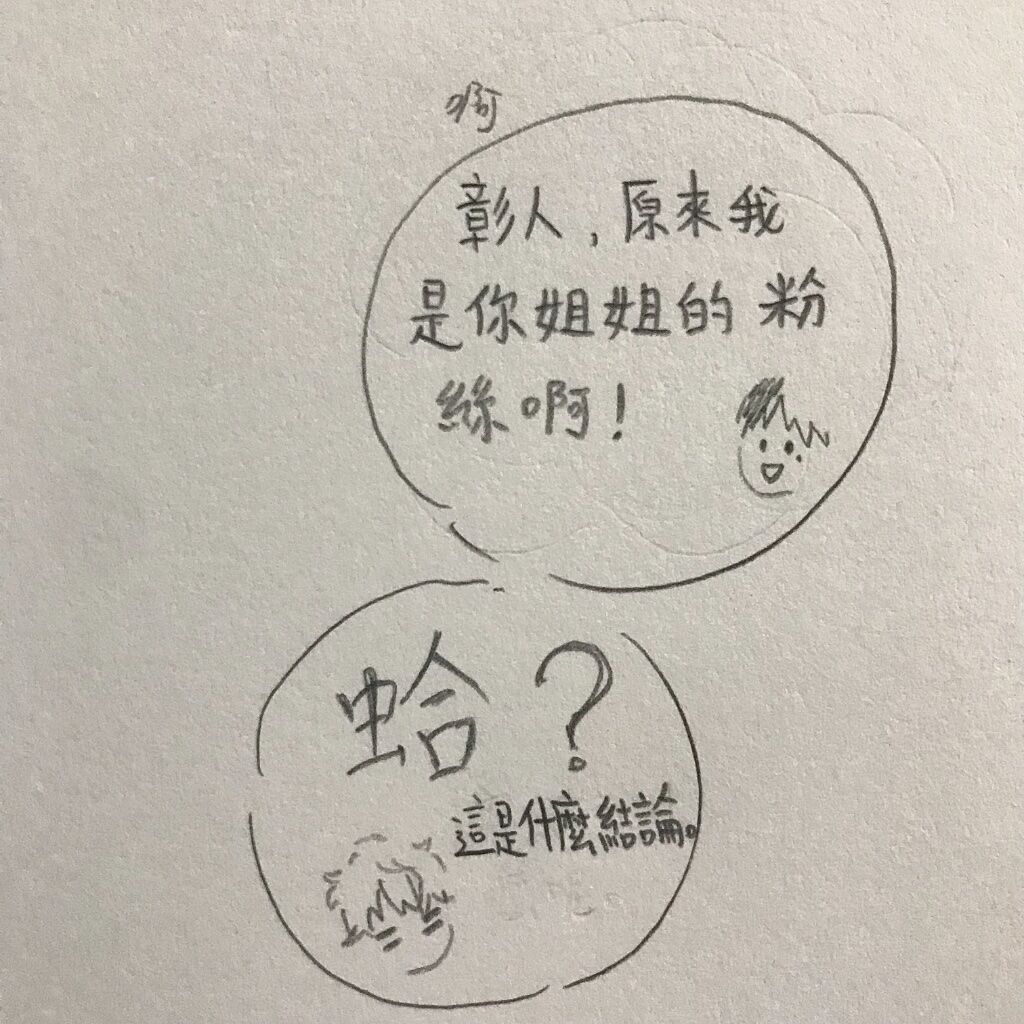 啊
彰人，原來我
是你姐姐的粉
絲啊！
蛤？
這是什麼結論。